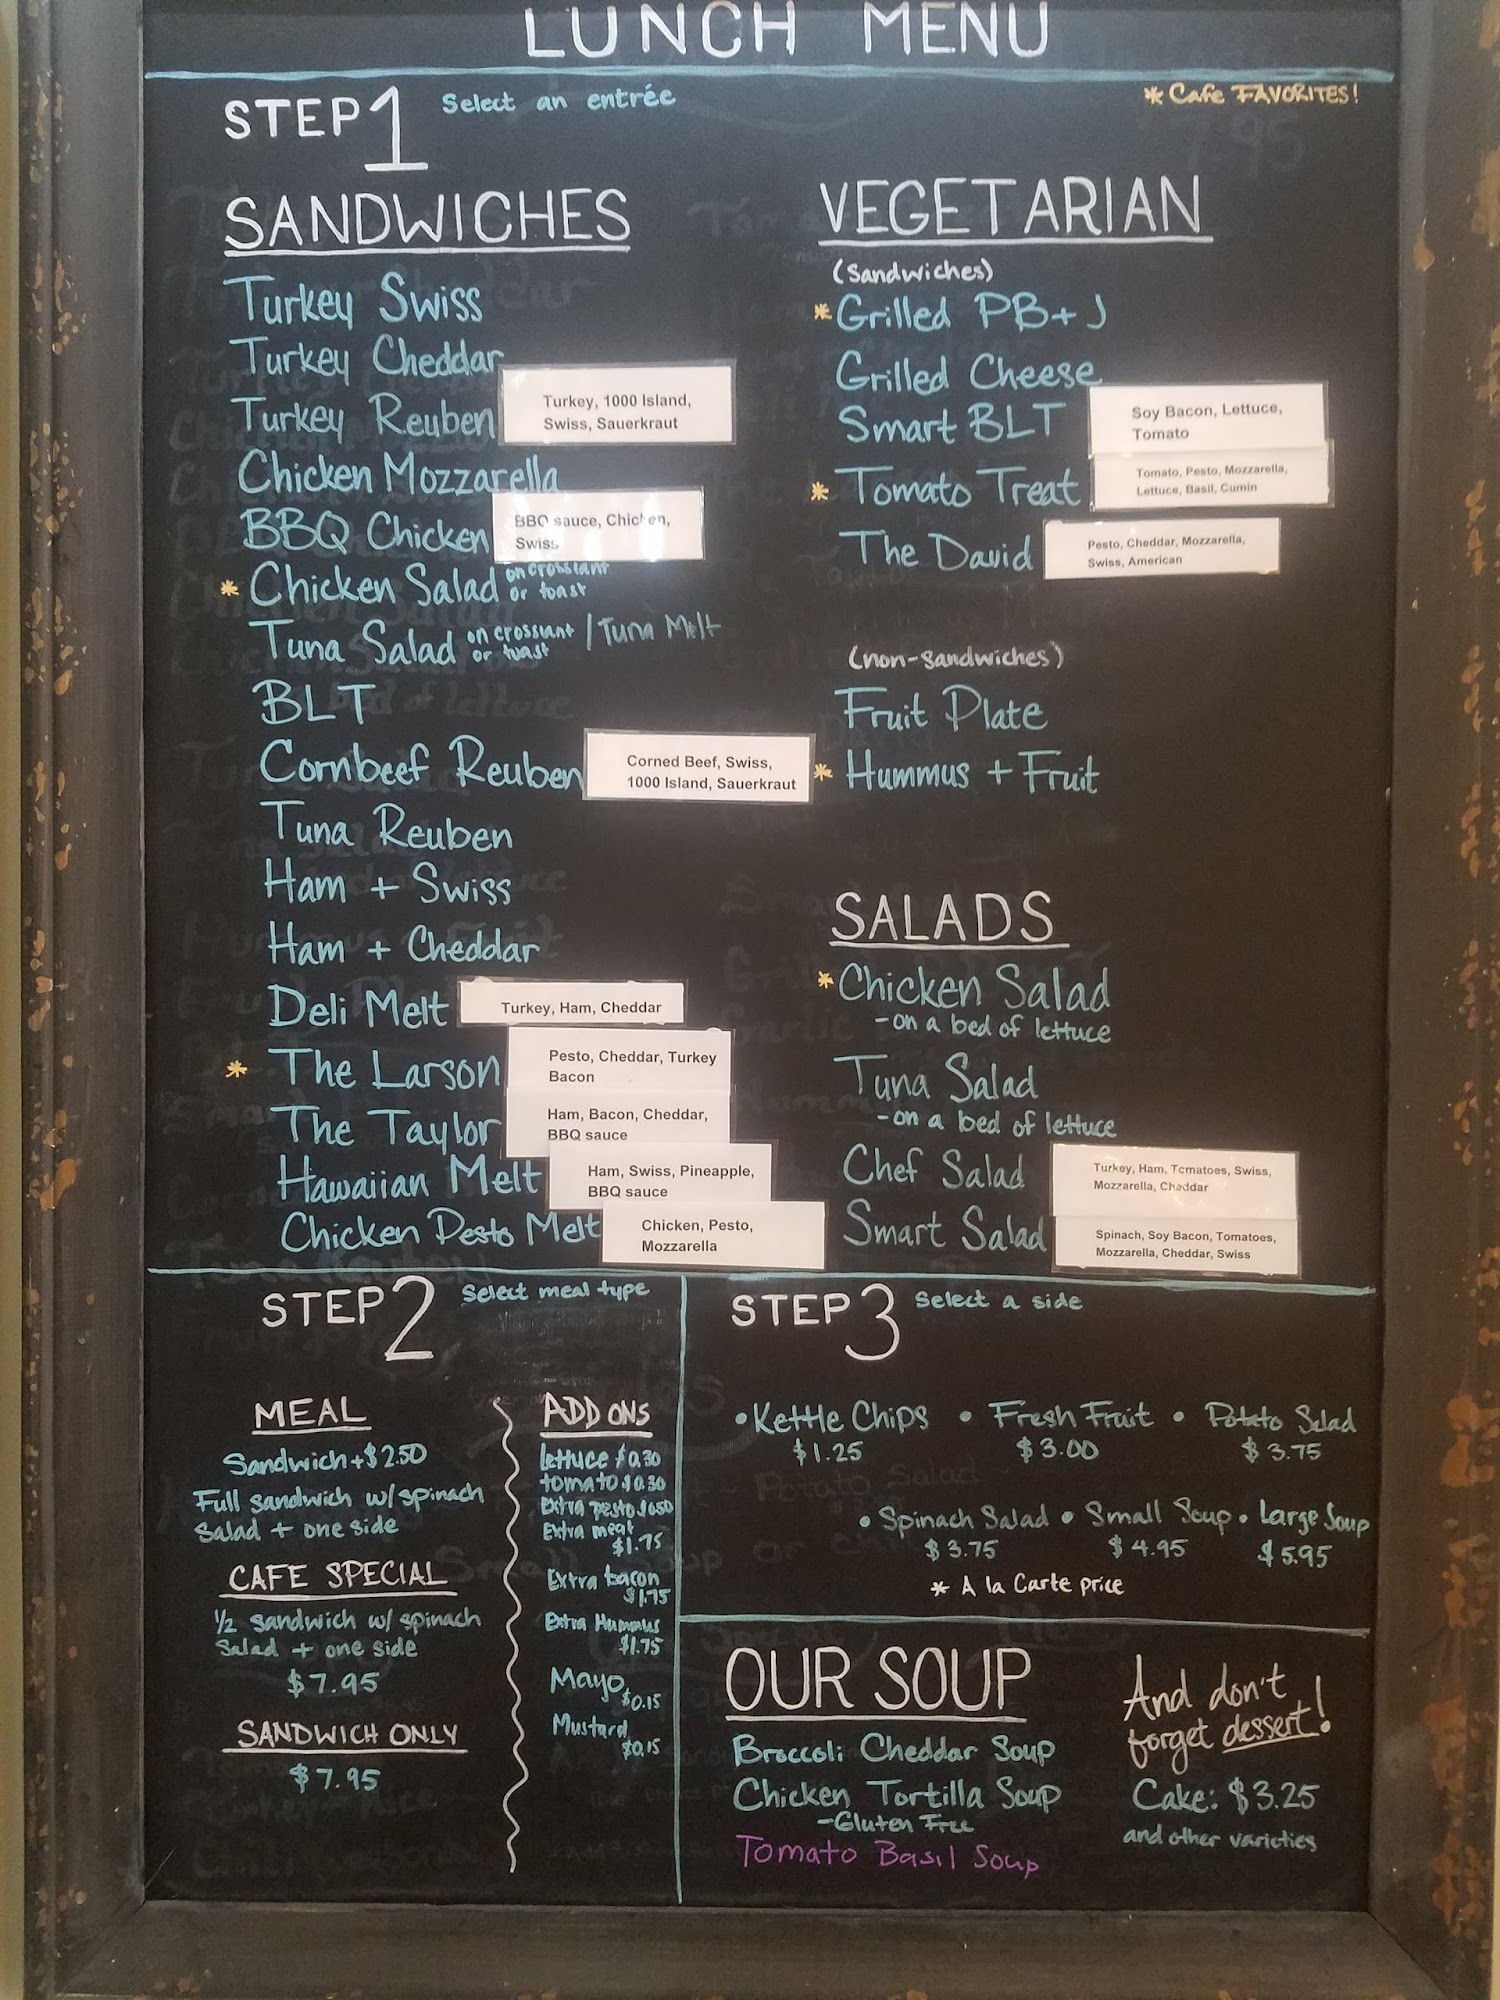 LUNCH MENU
STEP 1 Select an entrée
* Cafe FAVORITES!
SANDWICHES
Turkey Swiss
Turkey Cheddar
Turkey Reuben
Turkey, 1000 Island,
Swiss, Sauerkraut
Chicken Mozzarella
BBQ Chicken
BBQ sauce, Chicken,
Swiss
* Chicken Salad on crossiant
or toast
Tuna Salad on crossiant / Tuna Melt
or toast
BLT
Cornbeef Reuben
Corned Beef, Swiss,
1000 Island, Sauerkraut
Tuna Reuben
Ham + Swiss
Ham + Cheddar
Deli Melt
Turkey, Ham, Cheddar
* The Larson
Pesto, Cheddar, Turkey
Bacon
The Taylor
Ham, Bacon, Cheddar,
BBQ sauce
Hawaiian Melt
Ham, Swiss, Pineapple,
BBQ sauce
Chicken Pesto Melt
Chicken, Pesto,
Mozzarella
VEGETARIAN
(sandwiches)
* Grilled PB+J
Grilled Cheese
Smart BLT
Soy Bacon, Lettuce,
Tomato
* Tomato Treat
Tomato, Pesto, Mozzarella,
Lettuce, Basil, Cumin
The David
Pesto, Cheddar, Mozzarella,
Swiss, American
(non-sandwiches)
Fruit Plate
* Hummus + Fruit
SALADS
* Chicken Salad
-on a bed of lettuce
Tuna Salad
-on a bed of lettuce
Chef Salad
Turkey, Ham, Tomatoes, Swiss,
Mozzarella, Cheddar
Smart Salad
Spinach, Soy Bacon, Tomatoes,
Mozzarella, Cheddar, Swiss
STEP 2 Select meal type
MEAL
Sandwich + $2.50
Full sandwich w/ spinach
salad + one side
CAFE SPECIAL
1/2 sandwich w/ spinach
salad + one side
$7.95
SANDWICH ONLY
$7.95
ADD ONS
lettuce $0.30
tomato $0.30
Extra pesto $0.50
Extra meat
$1.75
Extra bacon
$1.75
Extra Hummus
$1.75
Mayo
$0.15
Mustard
$0.15
STEP 3 Select a side
• Kettle Chips • Fresh Fruit • Potato Salad
$1.25 $3.00 $3.75
• Spinach Salad • Small Soup • Large Soup
$3.75 $4.95 $5.95
* A la Carte price
OUR SOUP
Broccoli Cheddar Soup
Chicken Tortilla Soup
-Gluten Free
Tomato Basil Soup
And don't
forget dessert!
Cake: $3.25
and other varieties